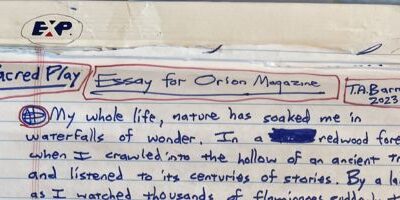 EXP.
acred Play
Essay for Orion Magazine
T.A. Barr
2023
My whole life, nature has soaked me in
waterfalls of wonder. In a redwood fore
when I crawled into the hollow of an ancient Tr
and listened to its centuries of stories. By a la
as I watched thousands of flamingoes